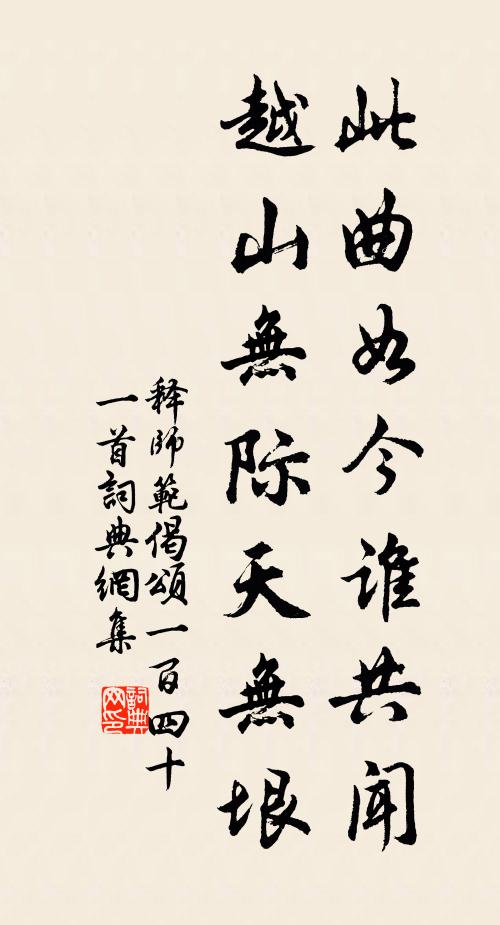 此曲如今谁共闻
越山無际天無垠
释師範偈頌一百四十
一首詞典網集
詞典
网印